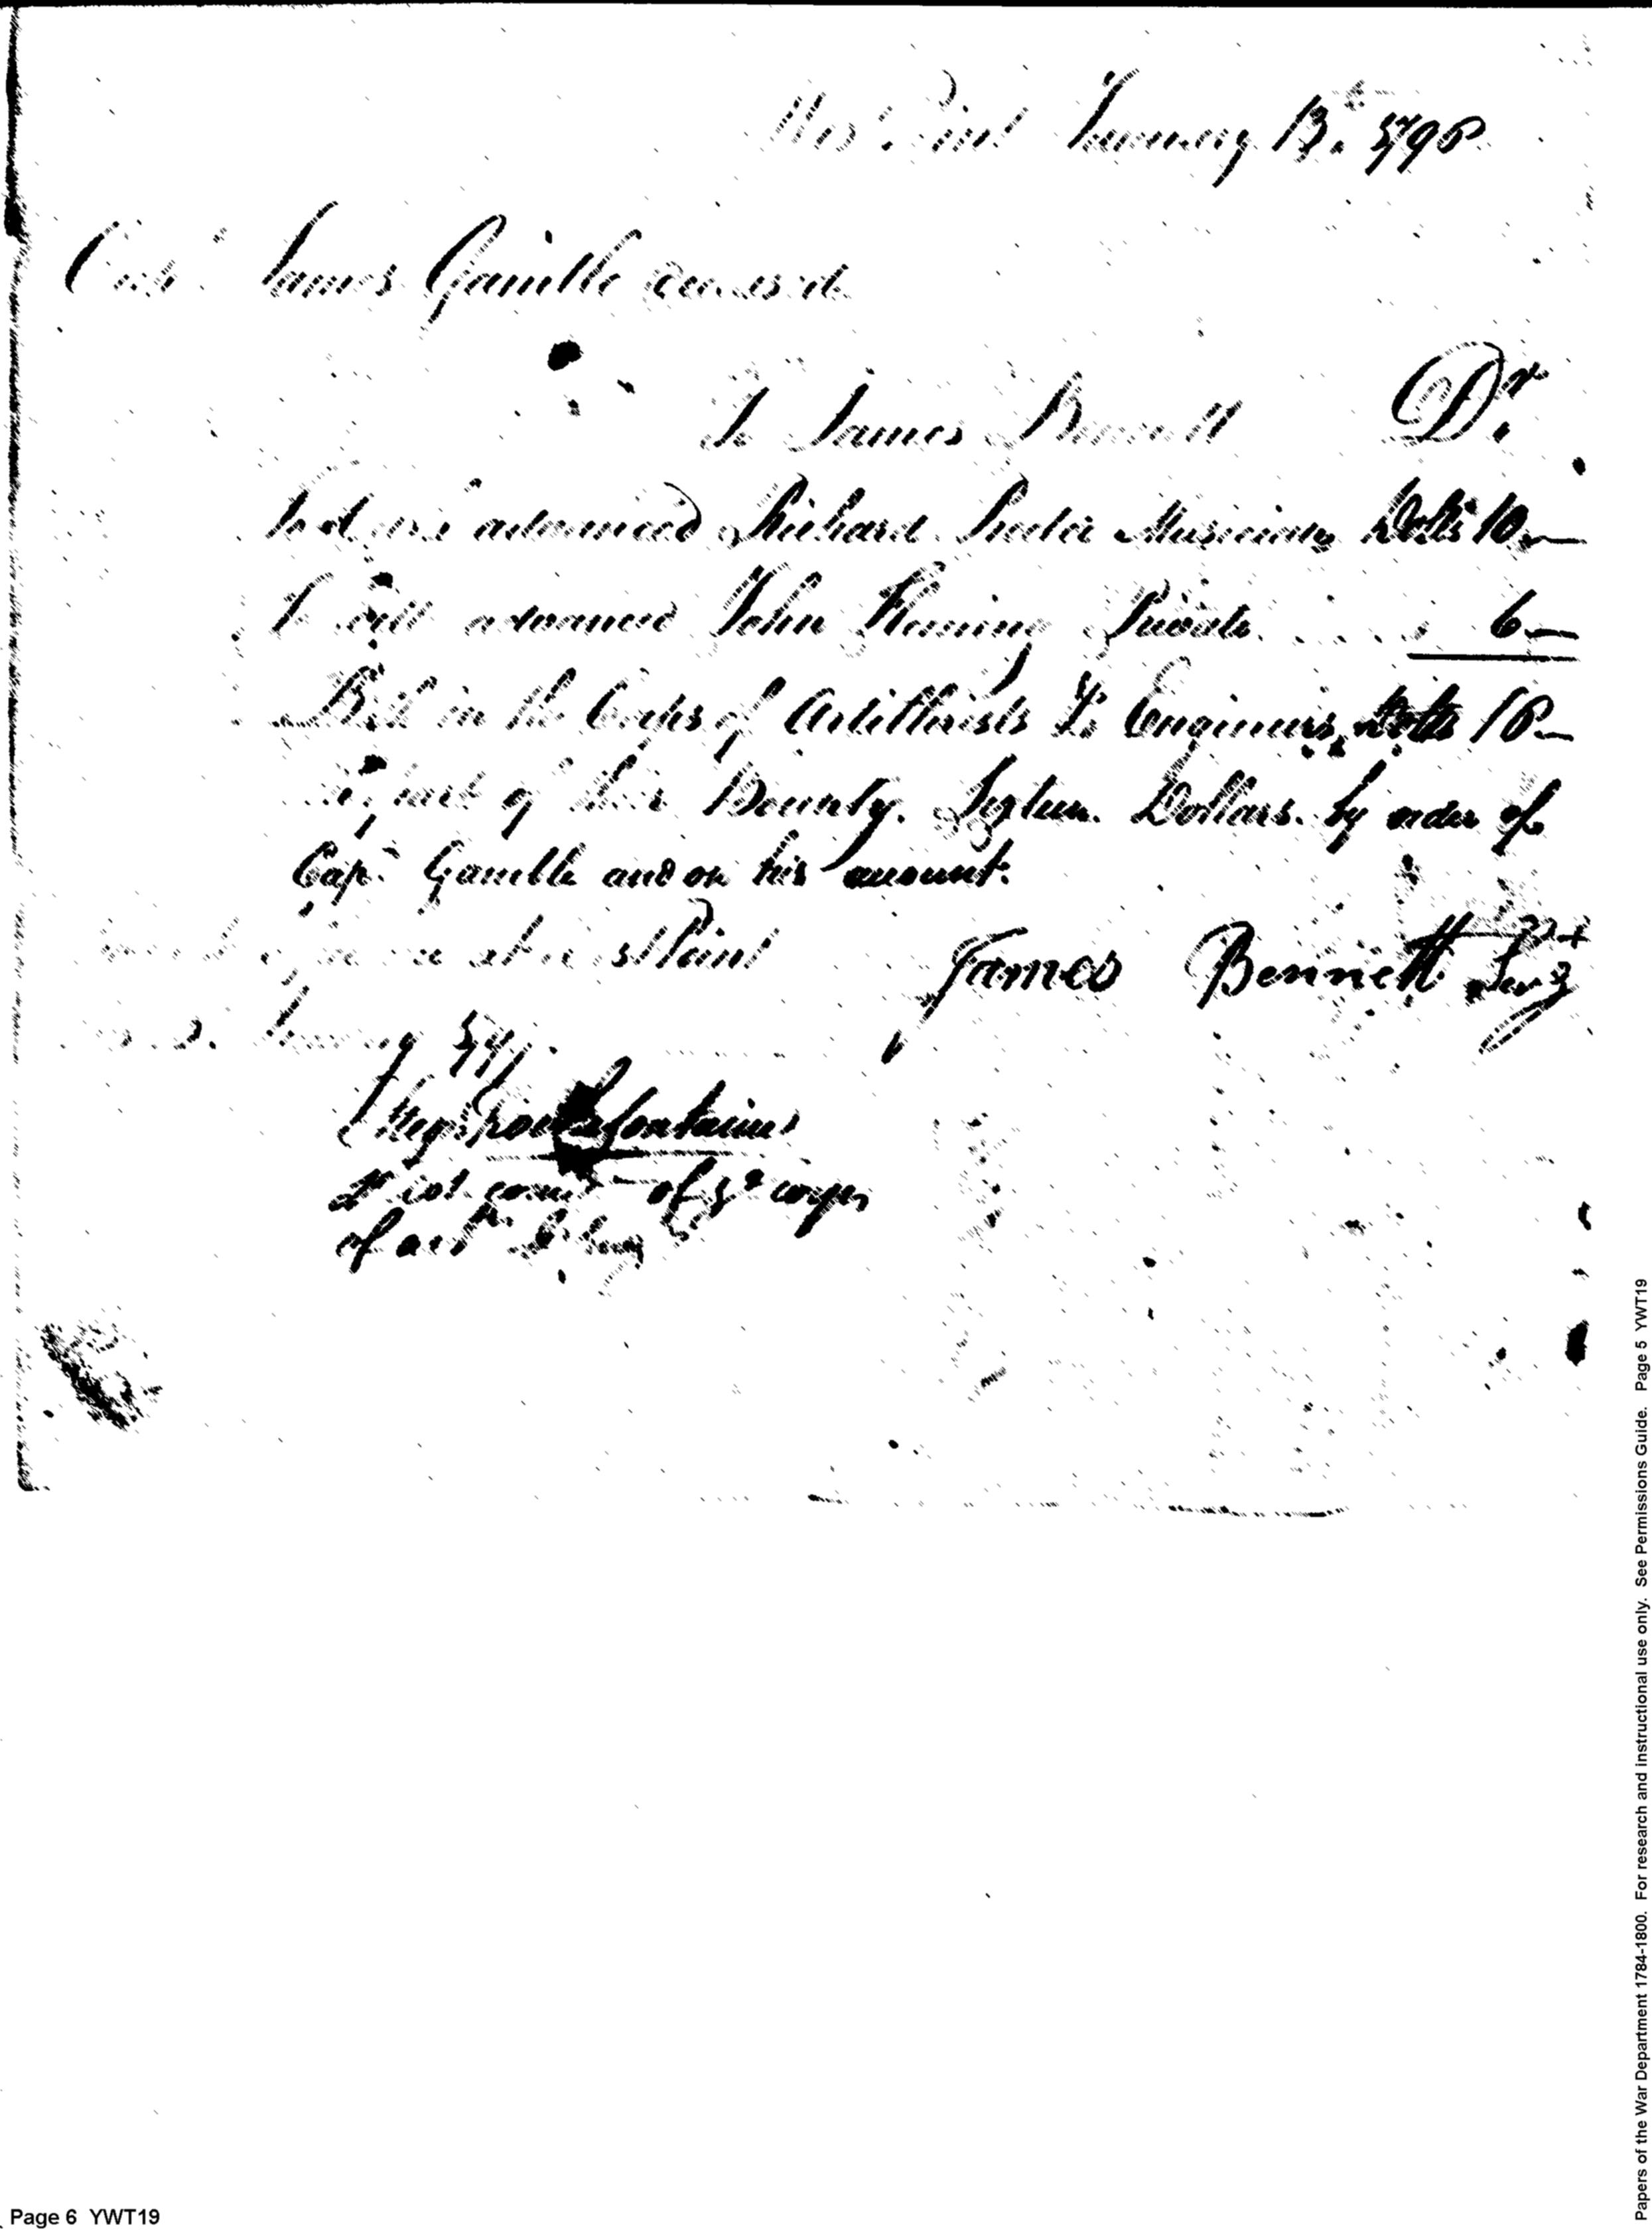 West Point January 13th. 1796
Capt. James Gamble deceased
To James Bennett Dr.
To advanced Richard Musician Dolls 10 —
To Cash advanced John Fleming Private . . . . 6 —
Both in the Corps of Artillerists & Engineers, Dolls 16 —
in part of their Bounty. Sixteen Dollars. by order of
Capt. Gamble and on his account.
at West Point
James Bennett Serj
January
Rochefontaine
Lt Col. comt of ye corps
of artis & Eng
Page 6 YWT19
Papers of the War Department 1784-1800. For research and instructional use only. See Permissions Guide. Page 5 YWT19